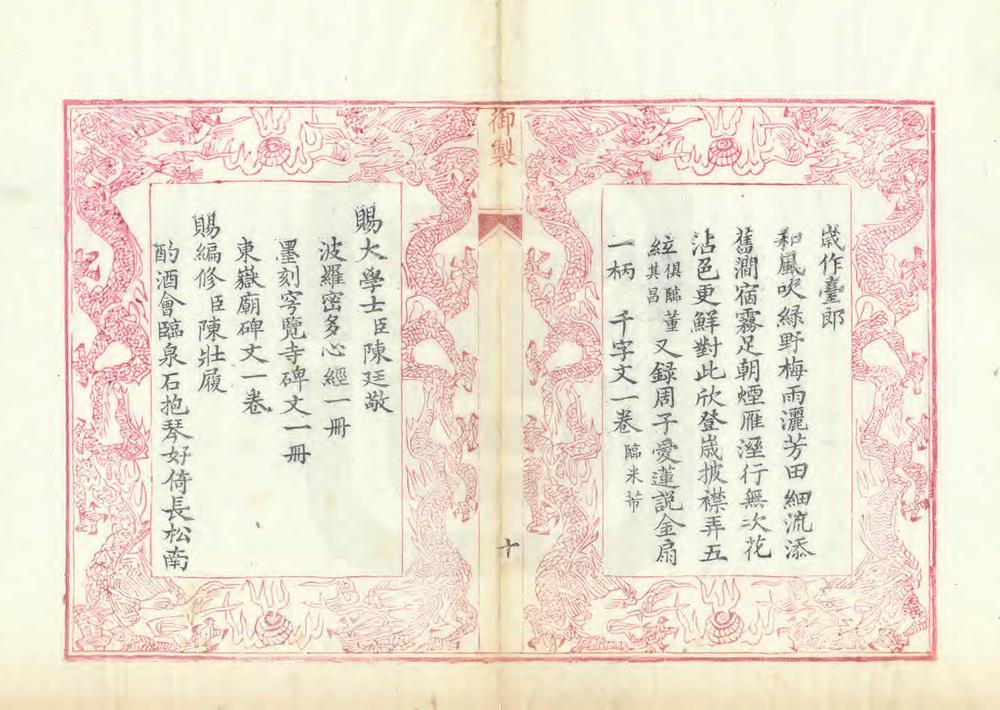 歲作臺郎
和風吹綠野梅雨灑芳田細流添
舊澗宿霧足朝煙雁溼行無次花
沾色更鮮對此欣登歲披襟弄五
絃俱臨董其昌又錄周子愛蓮說金扇
一柄千字文一卷臨米芾
御製
十
賜大學士臣陳廷敬
波羅密多心經一冊
墨刻穹覽寺碑文一冊
東嶽廟碑文一卷
賜編修臣陳壯履
酌酒會臨泉石抱琴好倚長松南